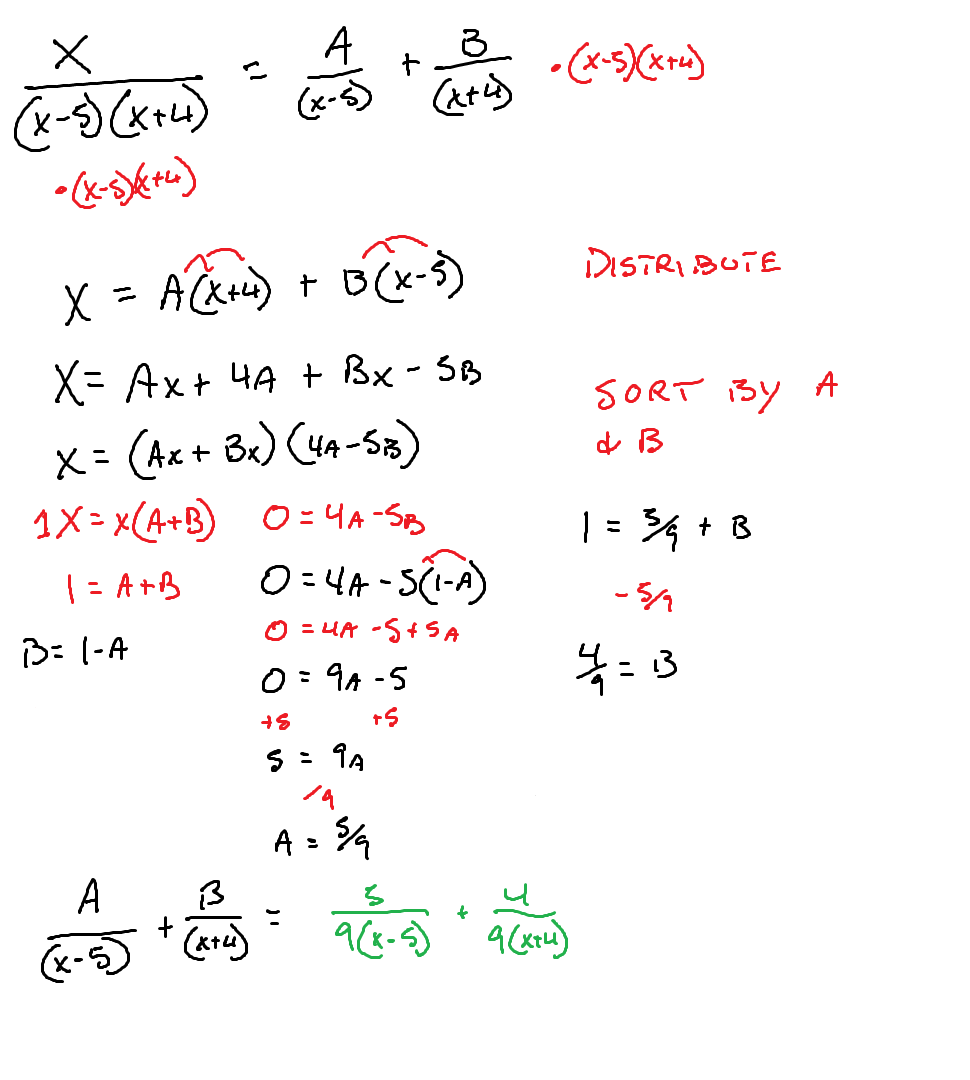 X/((x-5)(x+4)) = A/(x-5) + B/(x+4) •(x-5)(x+4)
•(x-5)(x+4)
X = A(x+4) + B(x-5) DISTRIBUTE
X = Ax + 4A + Bx - 5B SORT BY A
& B
x = (Ax + Bx)(4A-5B)
1X = x(A+B) 0 = 4A-5B 1 = 5/9 + B
1 = A+B 0 = 4A - 5(1-A) -5/9
B = 1-A 0 = 4A -5+5A 4/9 = B
0 = 9A - 5
+5 +5
5 = 9A
/9
A = 5/9
A/(x-5) + B/(x+4) = 5/(9(x-5)) + 4/(9(x+4))